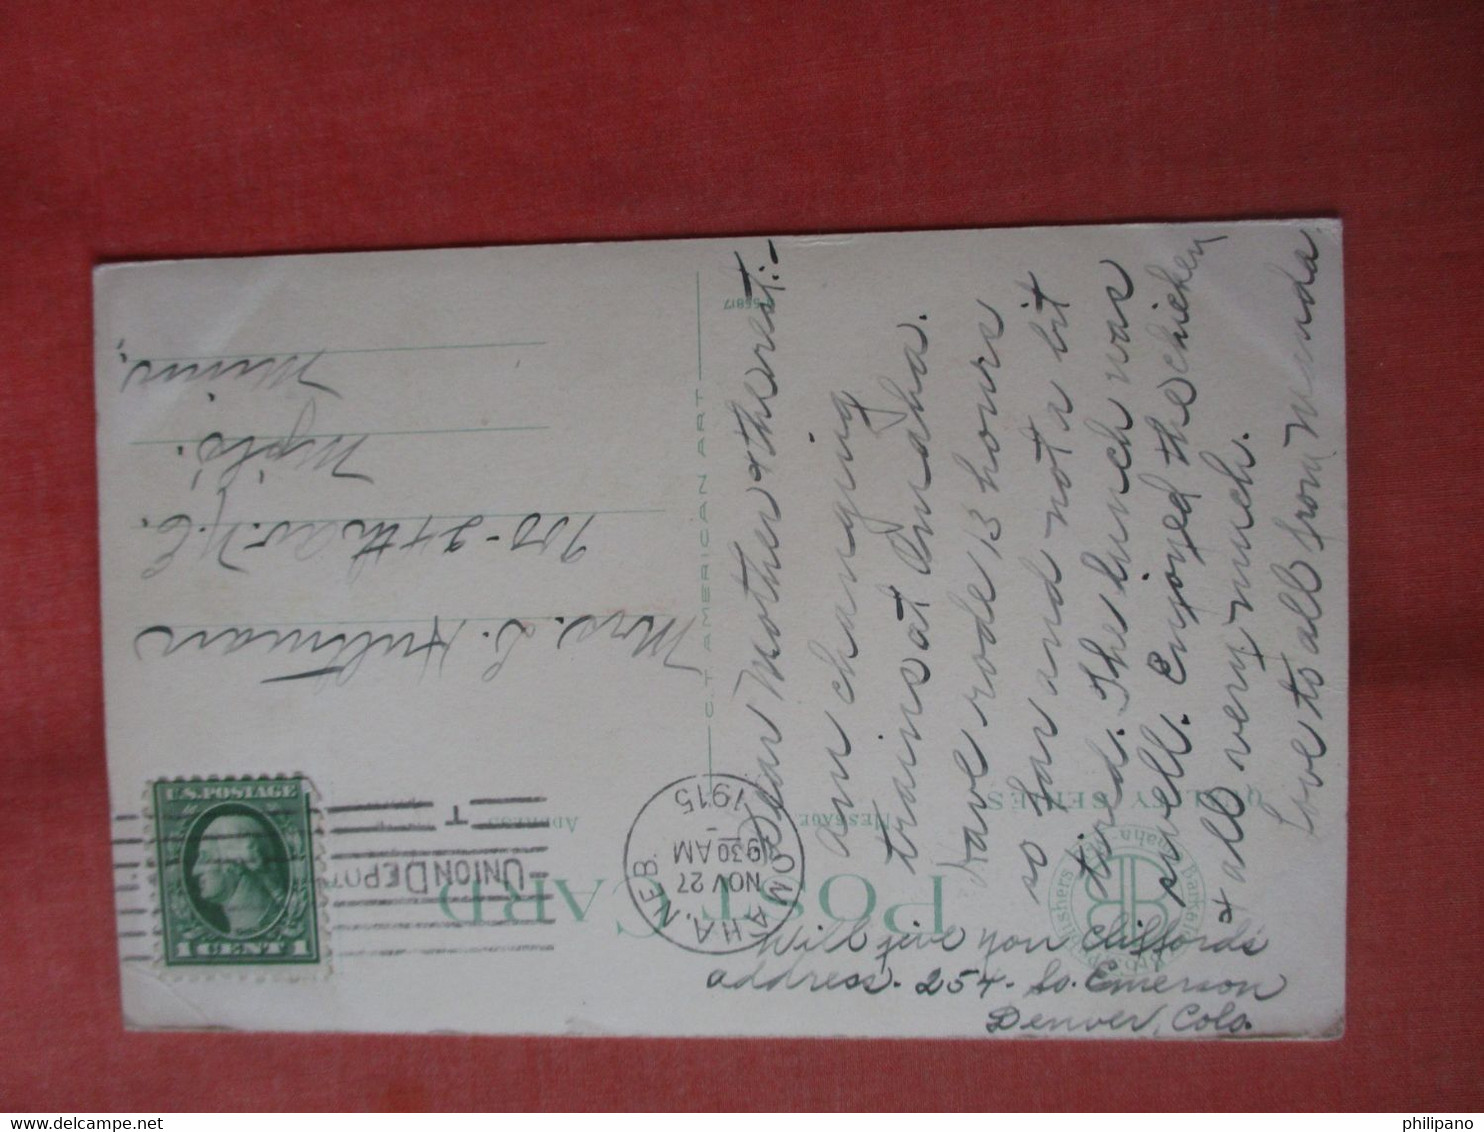 POST CARD
MESSAGE
ADDRESS
QUALITY SERIES
C.T. AMERICAN ART
OMAHA, NEB.
NOV 27
930 AM
1915
UNION DEPOT
T
U.S. POSTAGE
1 CENT 1
Dear Mother & the rest:-
am changing
trains at Omaha.
Have rode 13 hours
so far and not a bit
tired. The lunch was
swell. Enjoyed the chicken
& all very much.
Love to all from Menda
Will give you Cliffords
address. 254 - So. Emerson
Denver, Colo.
Mrs. S. Hultman
900-24th Av. N.E.
Mpls.
Minn.
philipano